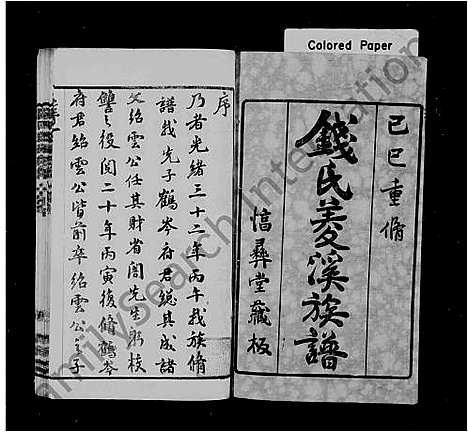 Colored Paper
己巳重脩
錢氏菱溪族譜
惇彞堂藏板
序
乃者光緒三十二年丙午我族脩
譜我先子鶴岑府君總其成諸
父紹雲公任其財省闇先生務校
讐之役閱二十年丙寅復脩鶴岑
府君紹雲公皆前卒紹雲公之子
FamilySearch International